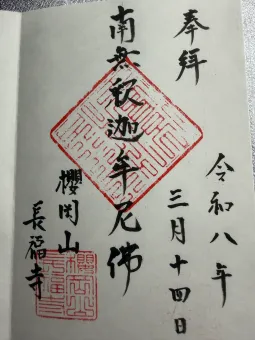 奉拜
令和八年
三月十四日
南無釈迦牟尼佛
櫻岡山
長福寺